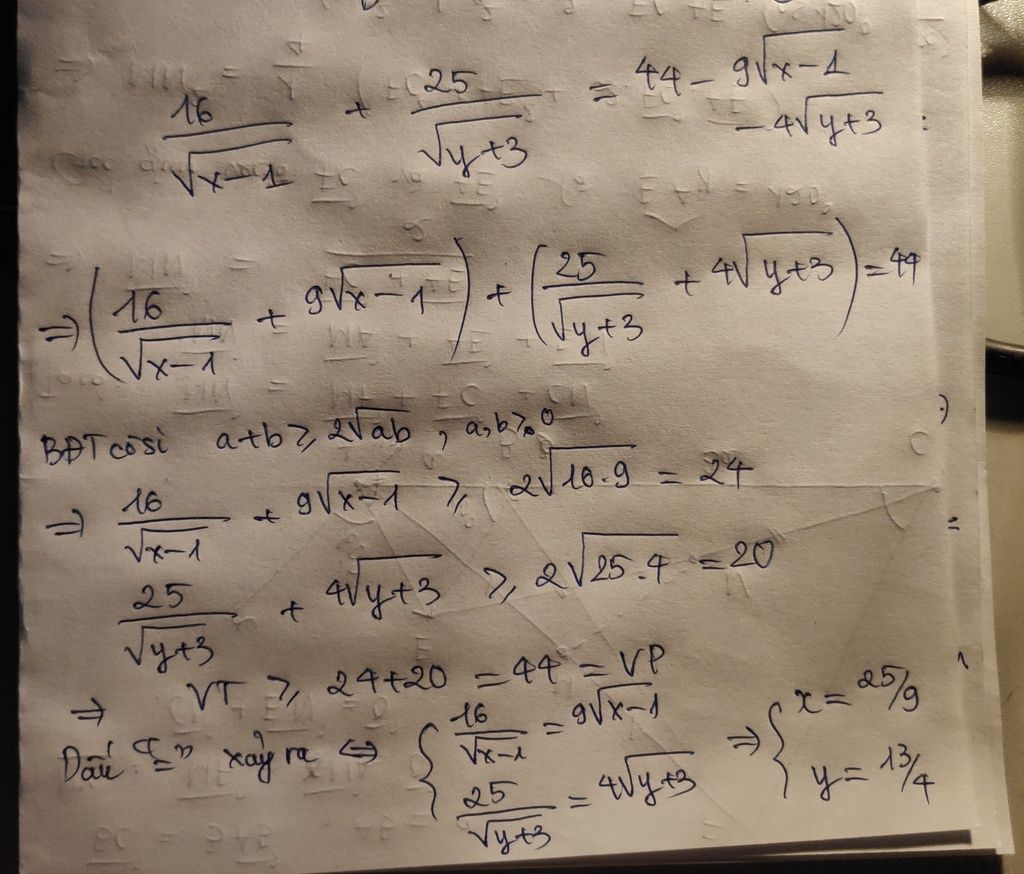 16/√(x-1) + 25/√(y+3) = 44 - 9√(x-1)
- 4√(y+3)
⇒ (16/√(x-1) + 9√(x-1)) + (25/√(y+3) + 4√(y+3)) = 44
BĐT côsi a+b ≥ 2√ab , a,b ≥ 0
⇒ 16/√(x-1) + 9√(x-1) ≥ 2√(16.9) = 24
25/√(y+3) + 4√(y+3) ≥ 2√(25.4) = 20
⇒ VT ≥ 24+20 = 44 = VP
Dấu "=" xảy ra ⇔ { 16/√(x-1) = 9√(x-1) ⇒ { x = 25/9
25/√(y+3) = 4√(y+3) y = 13/4